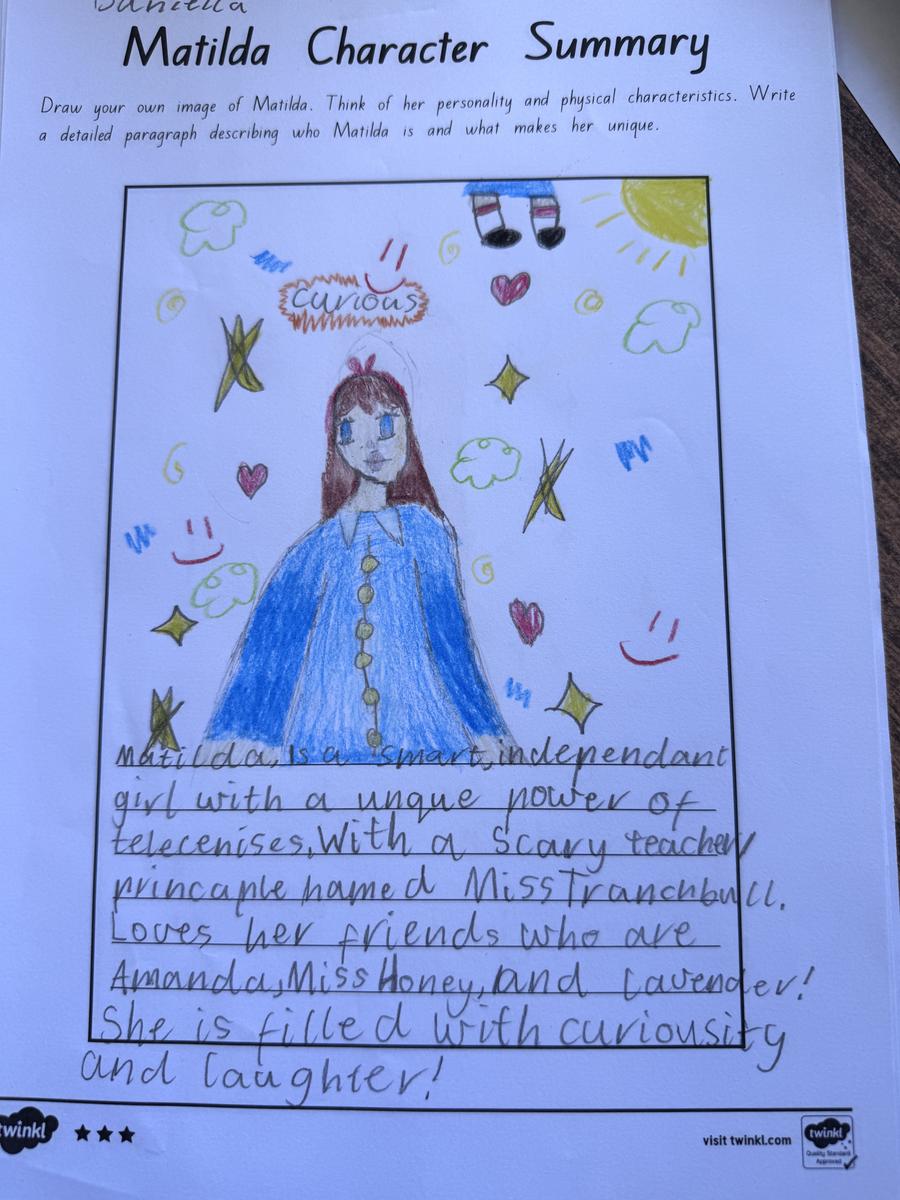 Daniella
Matilda Character Summary
Draw your own image of Matilda. Think of her personality and physical characteristics. Write
a detailed paragraph describing who Matilda is and what makes her unique.
curious
Matilda, is a smart, independant
girl with a unque power of
telecenises, With a Scary teacher/
princaple named Miss Tranchbull.
Loves her friends who are
Amanda, Miss Honey, and Lavender!
She is filled with curiousity
and laughter!
twinkl
visit twinkl.com
twinkl
Quality Standard
Approved